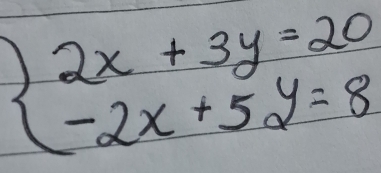 2x + 3y = 20
-2x + 5y = 8